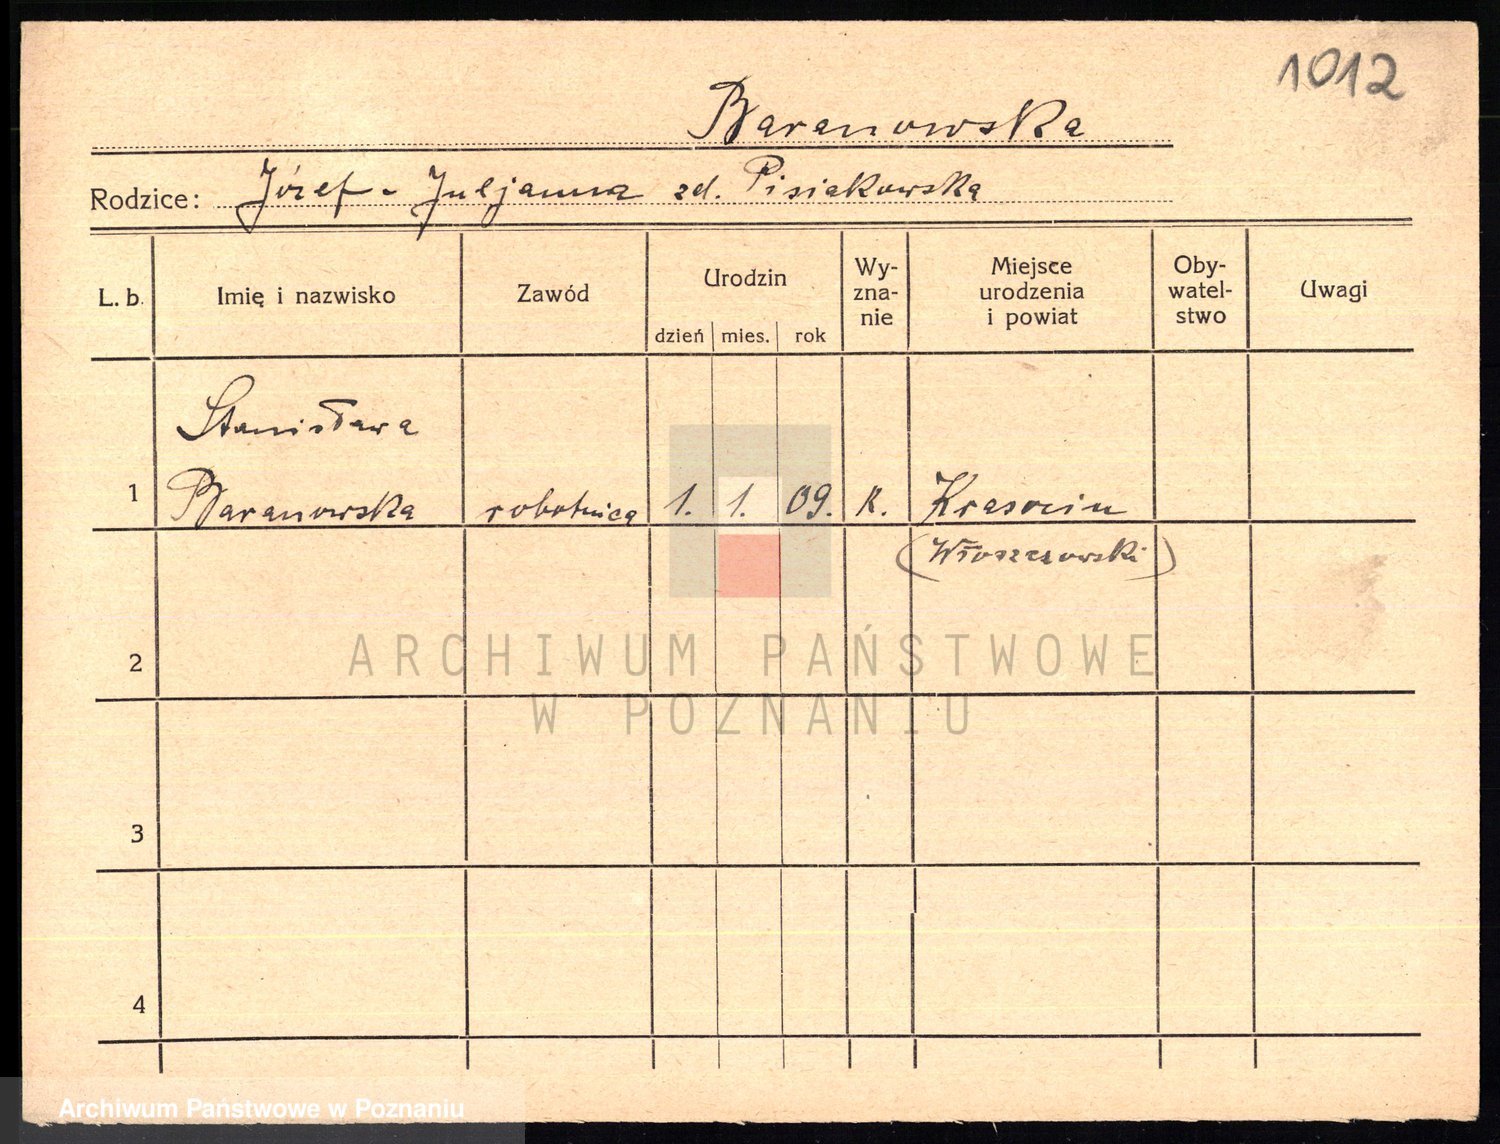 1012
Baranowska
Rodzice: Józef - Juljanna zd. Pisiakowska
L. b. Imię i nazwisko Zawód Urodzin Wy-zna-nie Miejsce urodzenia i powiat Oby-watel-stwo Uwagi
dzień mies. rok
Stanisława
1 Baranowska robotnica 1. 1. 09. k. Krasocin
(Włoszczowski)
2
ARCHIWUM PAŃSTWOWE
W POZNANIU
3
4
Archiwum Państwowe w Poznaniu